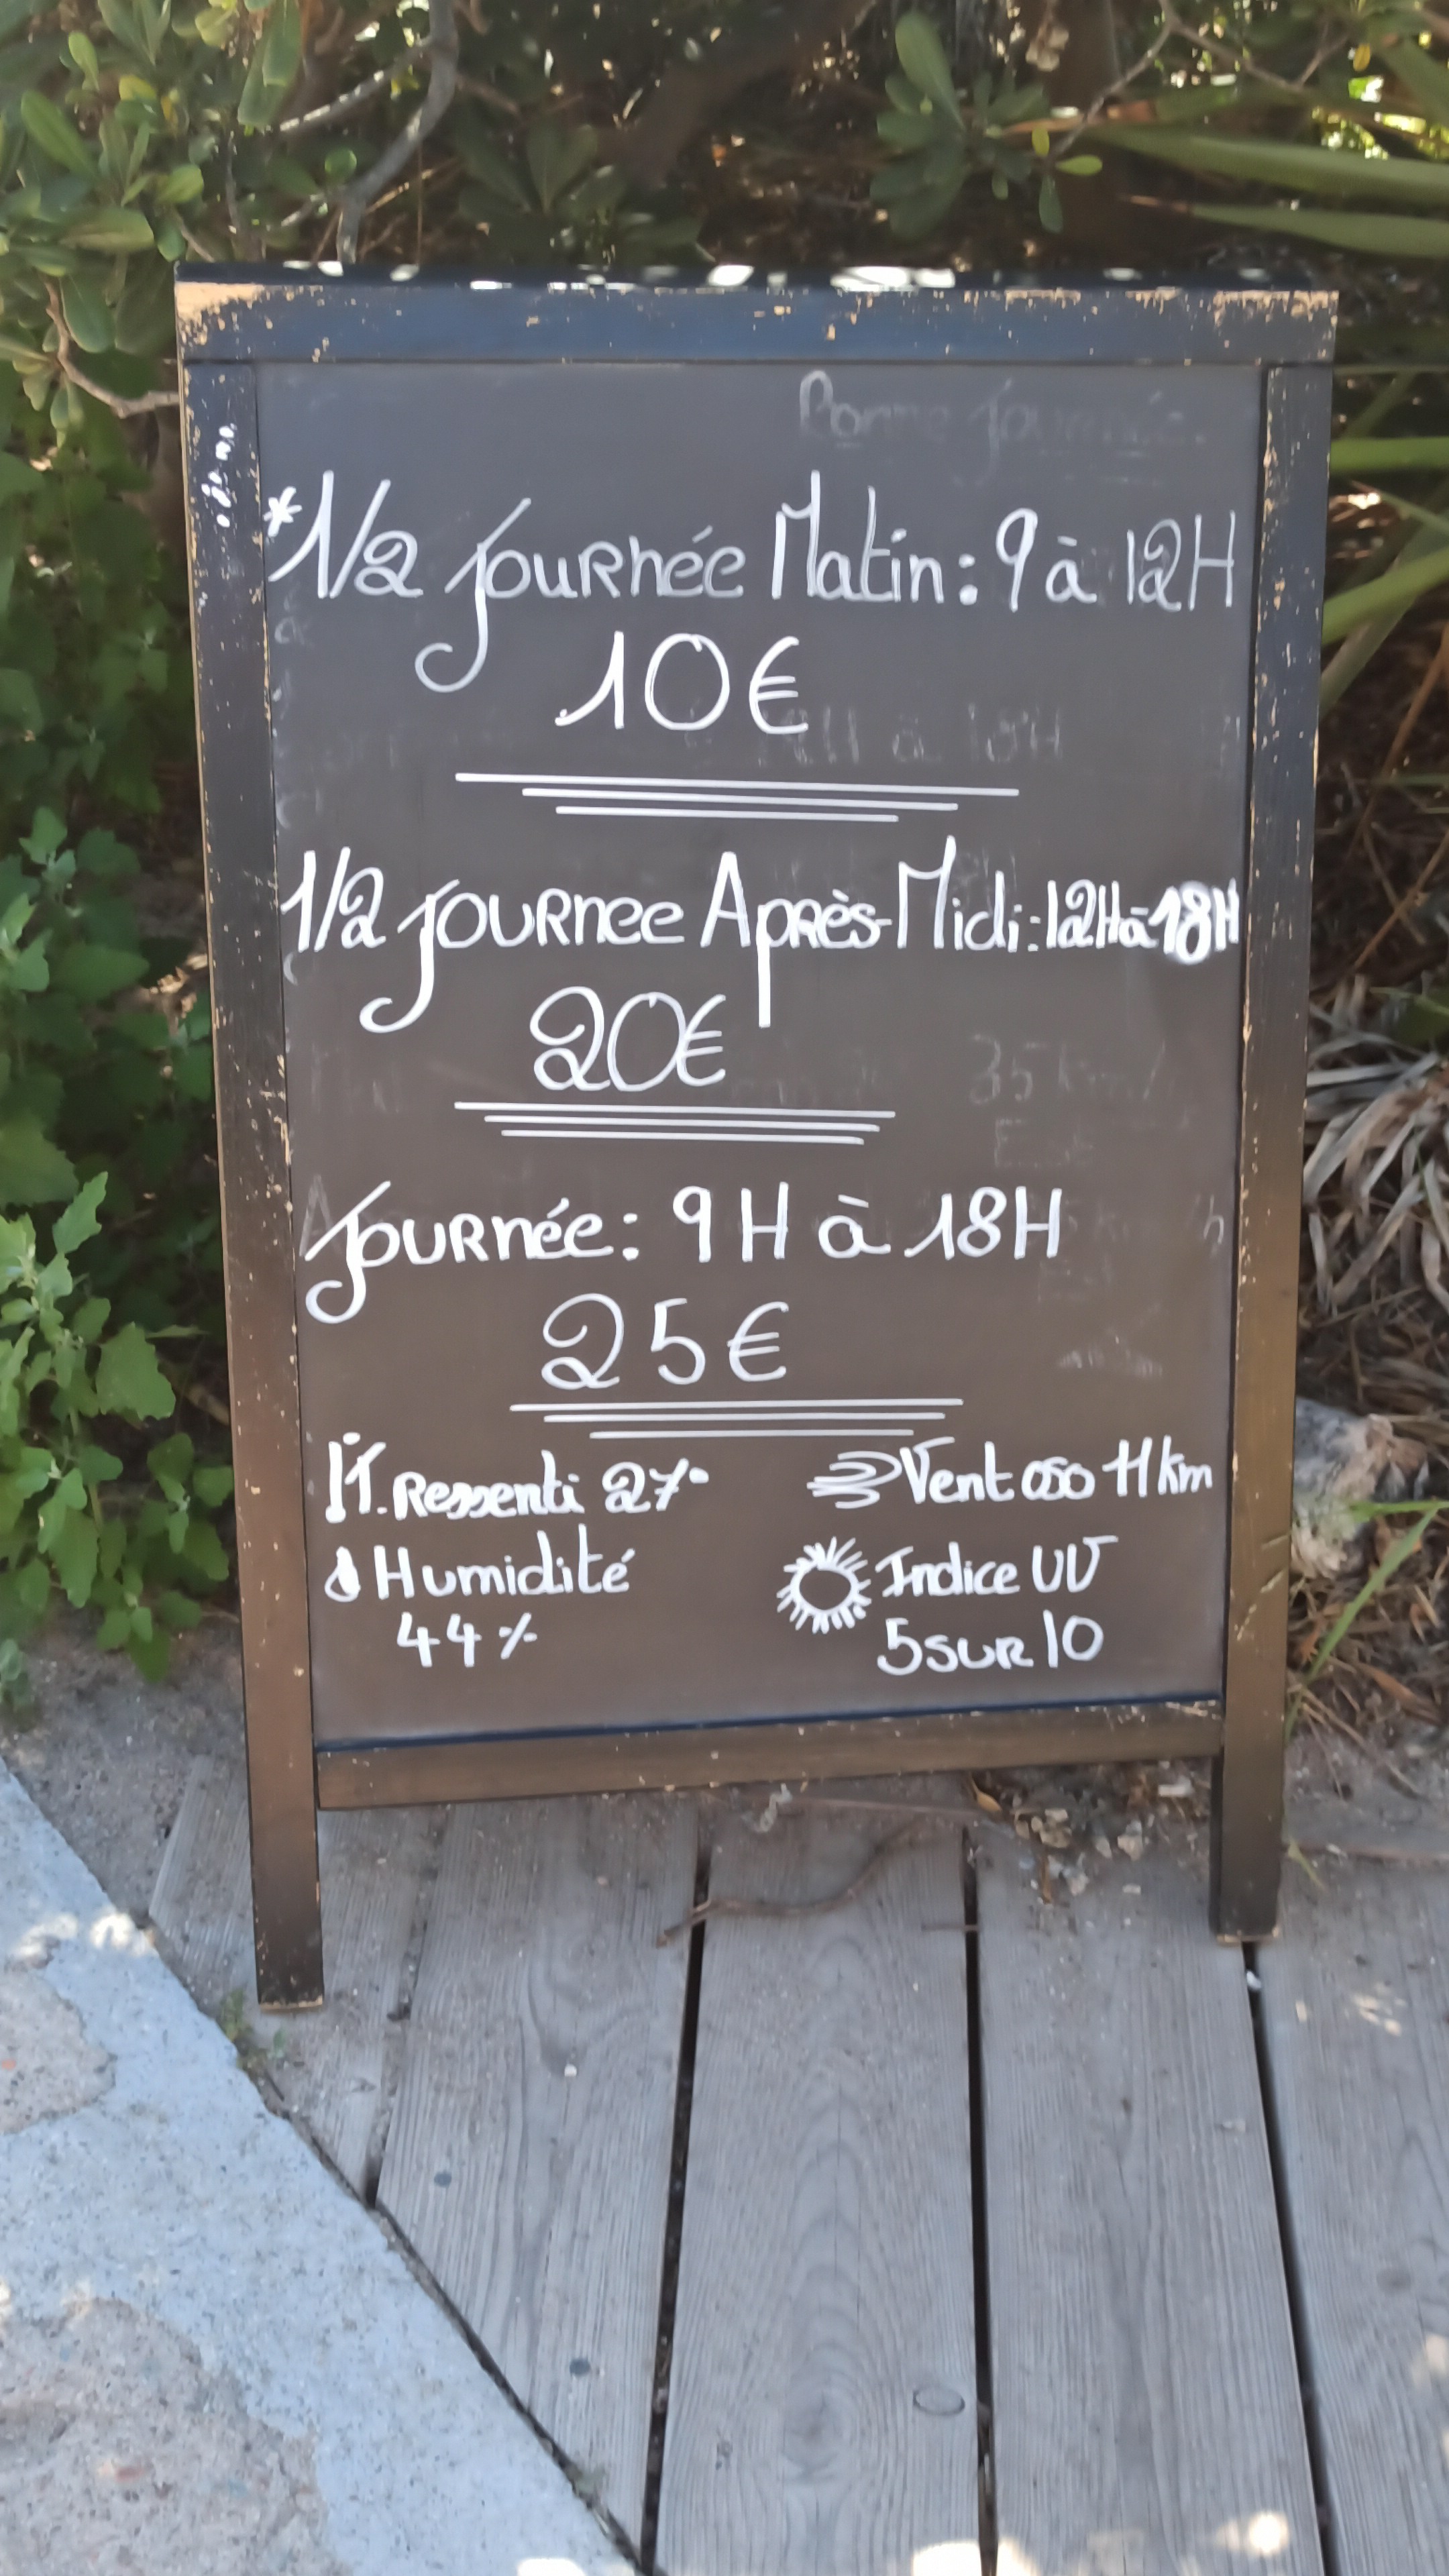 *1/2 journée Matin: 9 à 12H
10€
1/2 journee Après-Midi: 12H à 18H
20€
journée: 9H à 18H
25€
T. Ressenti 27°
Vent OSO 11 km
Humidité
44%
Indice UV
5 sur 10